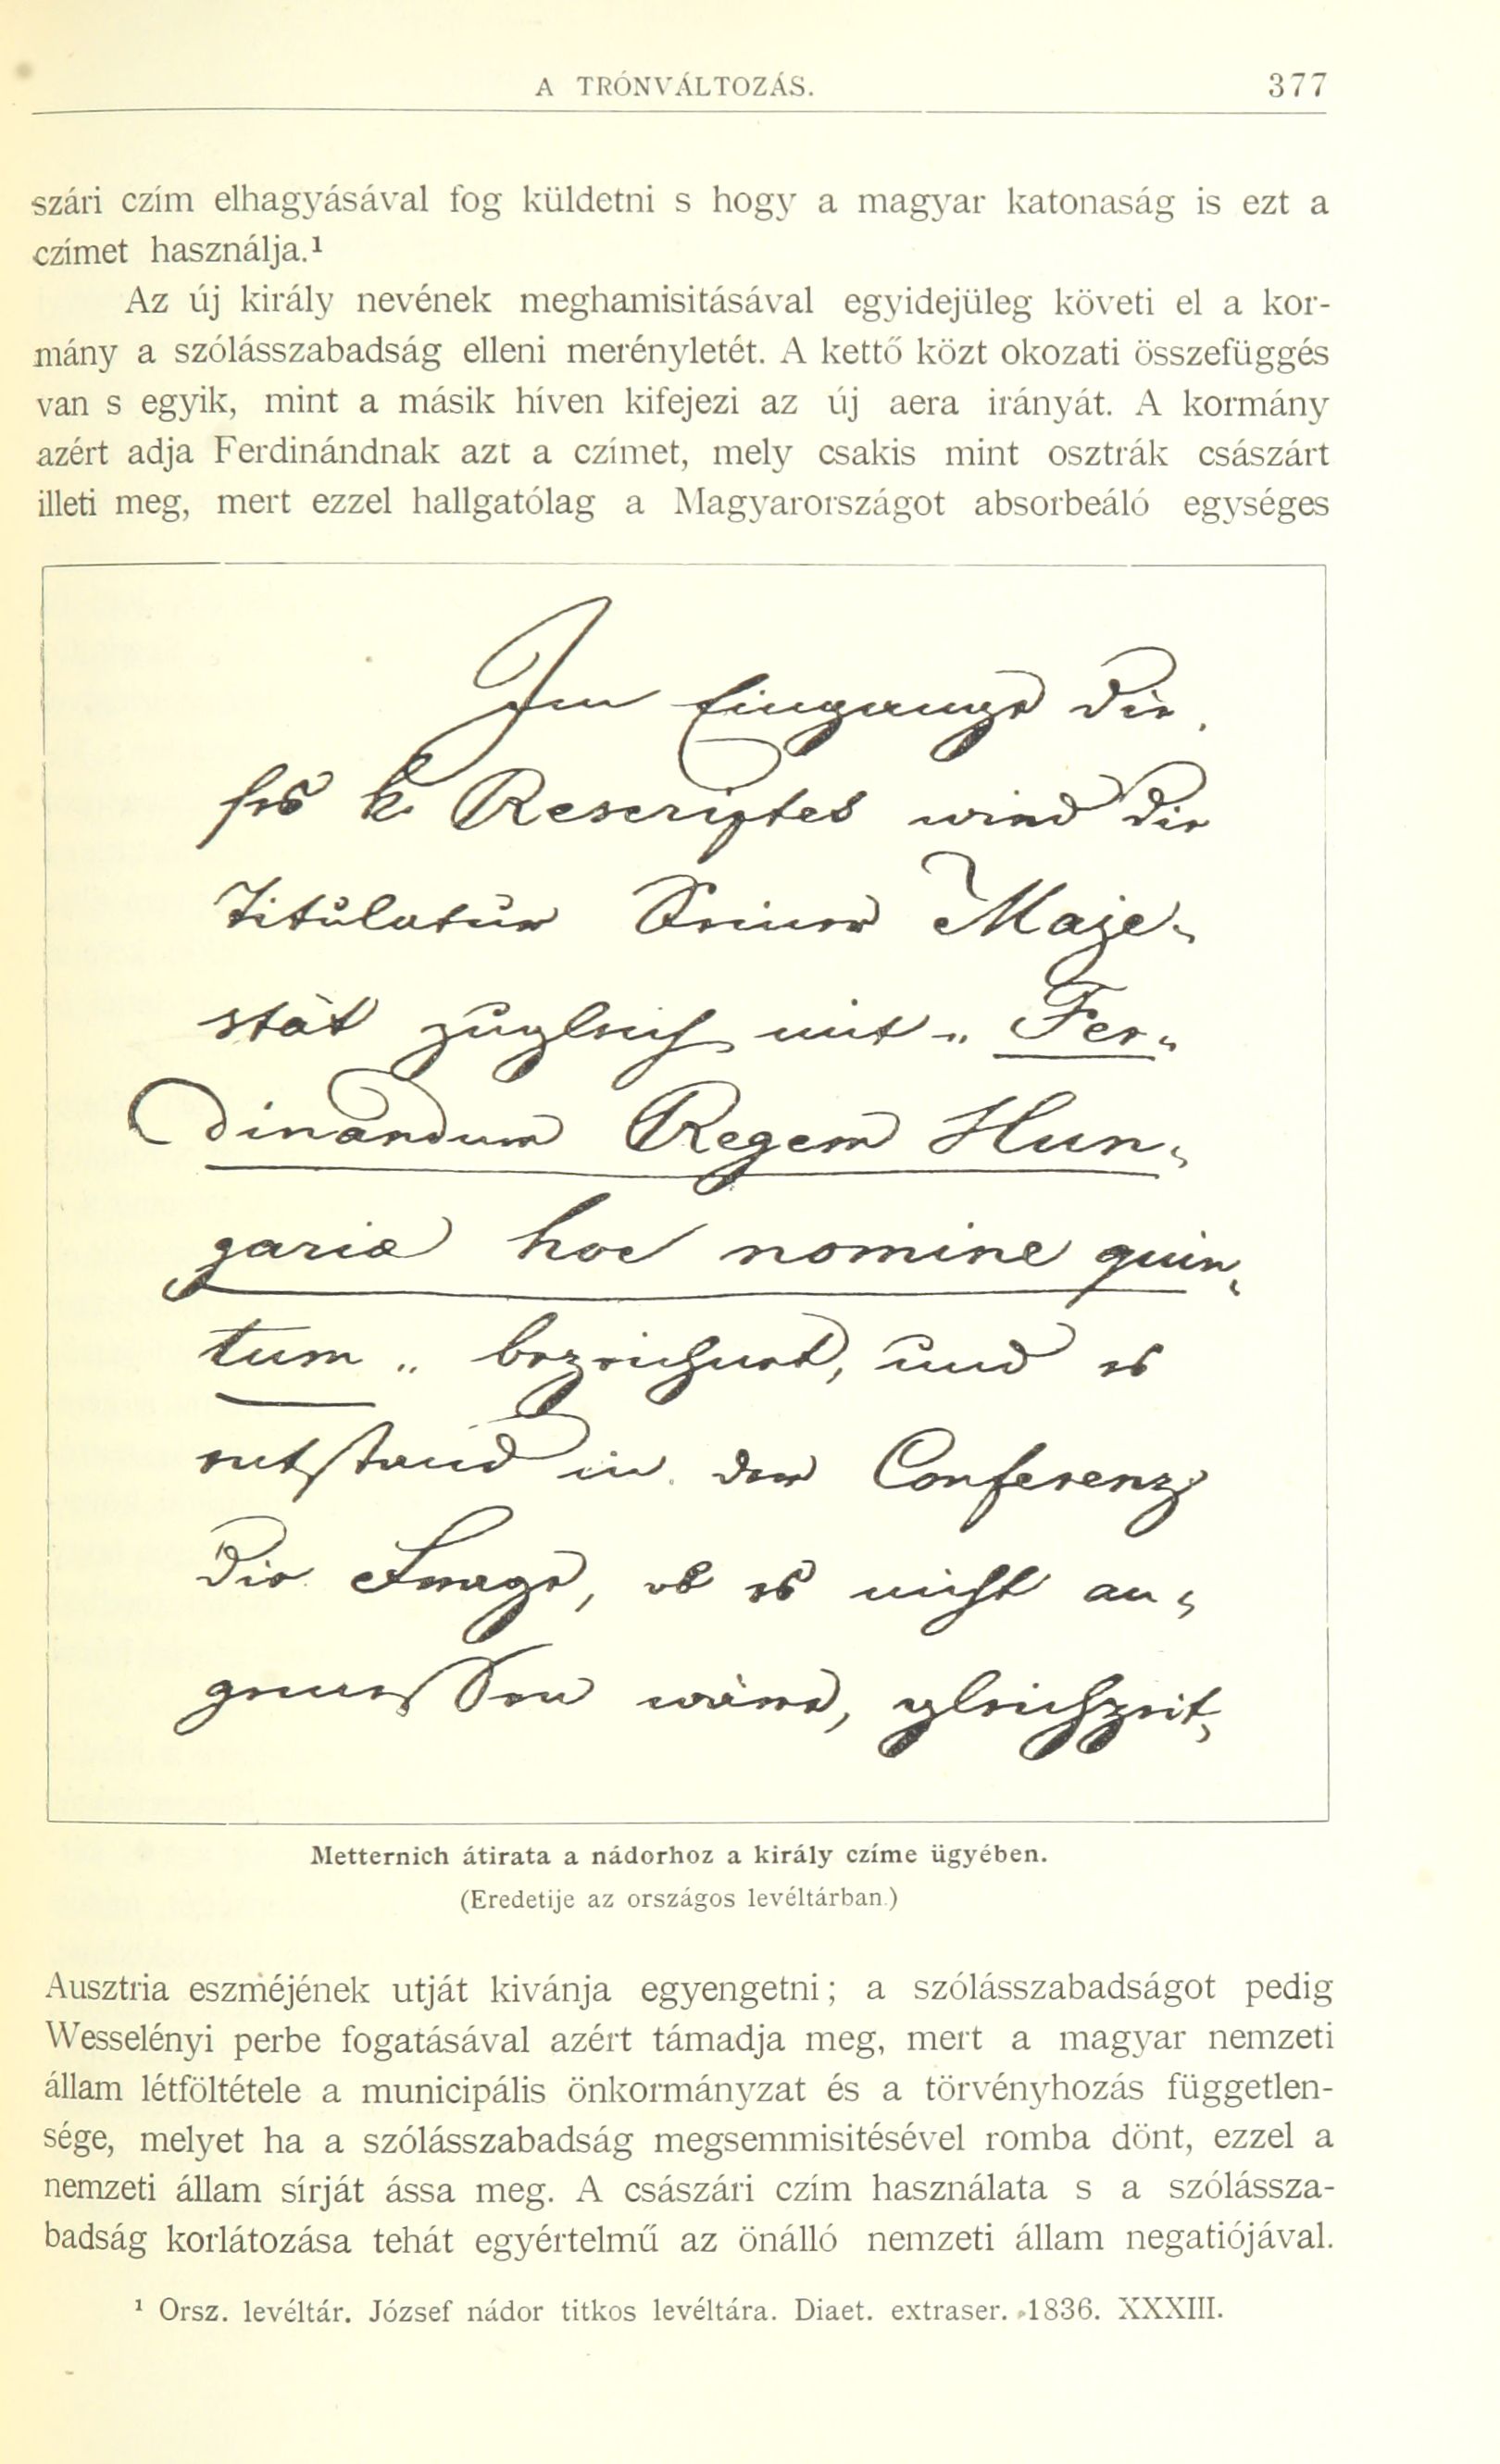 A TRÓNVÁLTOZÁS. 377
szári czím elhagyásával fog küldetni s hogy a magyar katonaság is ezt a
czímet használja.¹
Az új király nevének meghamisitásával egyidejüleg követi el a kor-
mány a szólásszabadság elleni merényletét. A kettő közt okozati összefüggés
van s egyik, mint a másik híven kifejezi az új aera irányát. A kormány
azért adja Ferdinándnak azt a czímet, mely csakis mint osztrák császárt
illeti meg, mert ezzel hallgatólag a Magyarországot absorbeáló egységes
Im Eingange die-
ses k. Rescriptes wird die
Titulatur Seiner Maje-
stät zugleich mit „Fer-
dinandum Regem Hun-
gariæ hoc nomine quin-
tum„ bezeichnet, und es
entstand in der Conferenz
die Frage, ob es nicht an-
gemessen wäre, gleichzeit-
Metternich átirata a nádorhoz a király czíme ügyében.
(Eredetije az országos levéltárban.)
Ausztria eszméjének utját kivánja egyengetni; a szólásszabadságot pedig
Wesselényi perbe fogatásával azért támadja meg, mert a magyar nemzeti
állam létföltétele a municipális önkormányzat és a törvényhozás független-
sége, melyet ha a szólásszabadság megsemmisitésével romba dönt, ezzel a
nemzeti állam sírját ássa meg. A császári czím használata s a szólássza-
badság korlátozása tehát egyértelmű az önálló nemzeti állam negatiójával.
¹ Orsz. levéltár. József nádor titkos levéltára. Diaet. extraser. 1836. XXXIII.